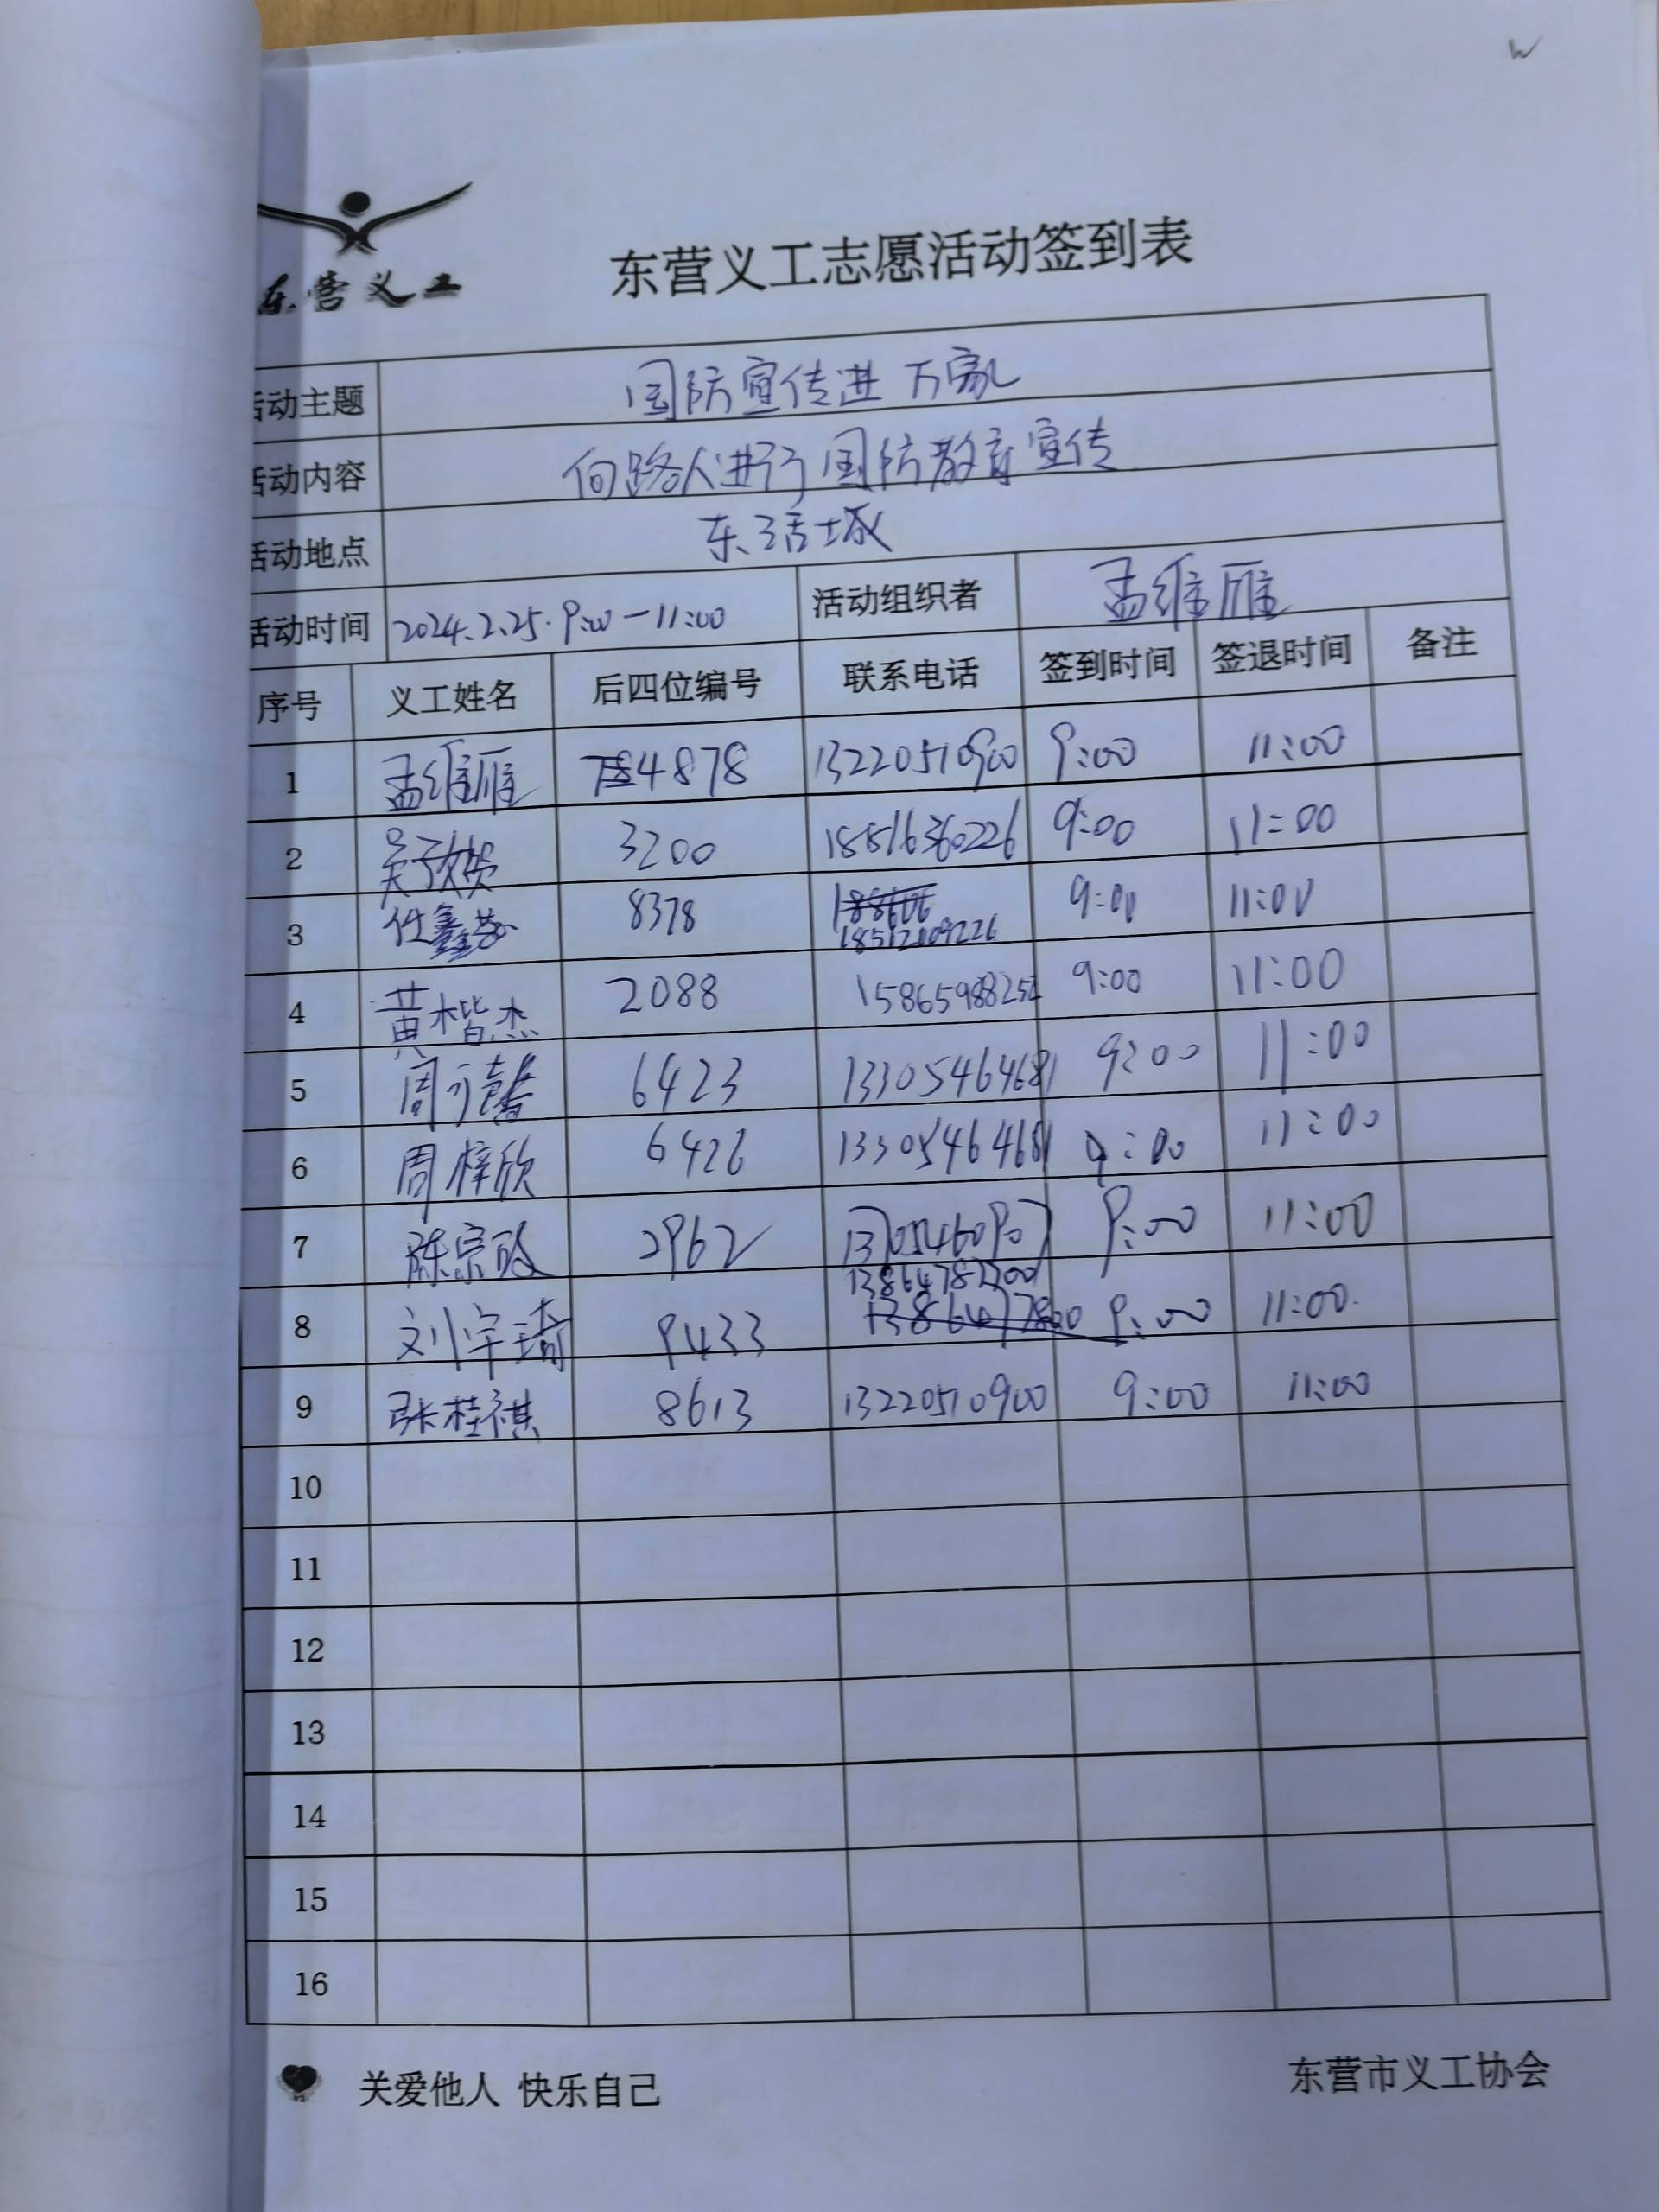 东营义工
东营义工志愿活动签到表
活动主题 国防宣传进万家
活动内容 向路人进行国防教育宣传
活动地点 东活城
活动时间 2024.2.25. 9:00-11:00 活动组织者 孟维雁
序号 义工姓名 后四位编号 联系电话 签到时间 签退时间 备注
1 孟维雁 4878 13220510900 9:00 11:00
2 3200 18516360226 9:00 11:00
3 8378 9:00 11:00
4 黄楷杰 2088 9:00 11:00
5 6423 13305464681 9:00 11:00
6 周梓欣 6426 13305464681 9:00 11:00
7 2962 13705460907 9:00 11:00
8 刘宇琦 9433 9:00 11:00
9 张桂祺 8613 13220510900 9:00 11:00
10
11
12
13
14
15
16
关爱他人 快乐自己 东营市义工协会